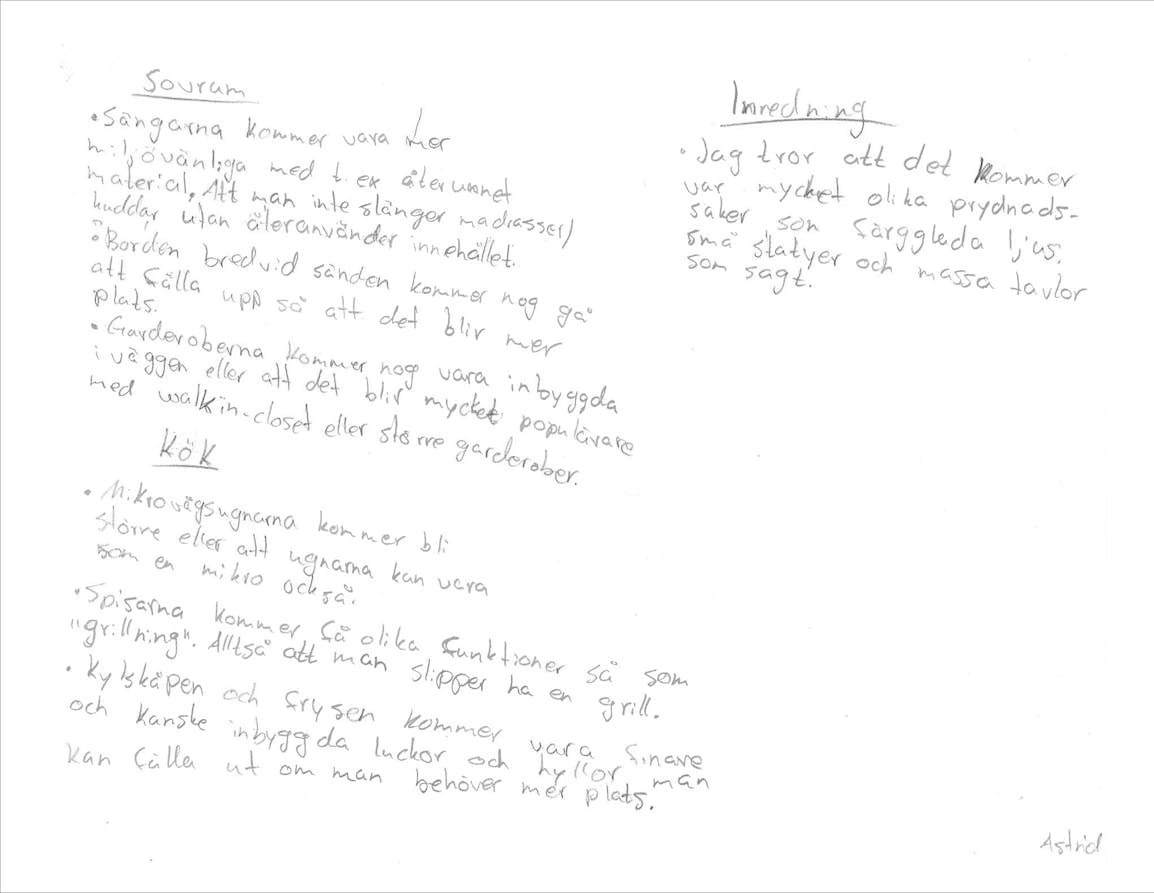 Sovrum
• Sängarna kommer vara mer
miljövänliga med t.ex återvunnet
material. Att man inte slänger madrasser/
kuddar utan återanvänder innehållet.
• Borden bredvid sänden kommer nog gå
att fälla upp så att det blir mer
plats.
• Garderoberna kommer nog vara inbyggda
i väggen eller att det blir mycket populärare
med walkin-closet eller större garderober.
Kök
• Mikrovågsugnarna kommer bli
större eller att ugnarna kan vara
som en mikro också.
• Spisarna kommer få olika funktioner så som
"grillning". Alltså att man slipper ha en grill.
• Kylskåpen och frysen kommer vara finare
och kanske inbyggda luckor och hyllor man
kan fälla ut om man behöver mer plats.
Inredning
• Jag tror att det kommer
var mycket olika prydnads-
saker, son färgglada ljus,
små statyer och massa tavlor
som sagt.
Astrid